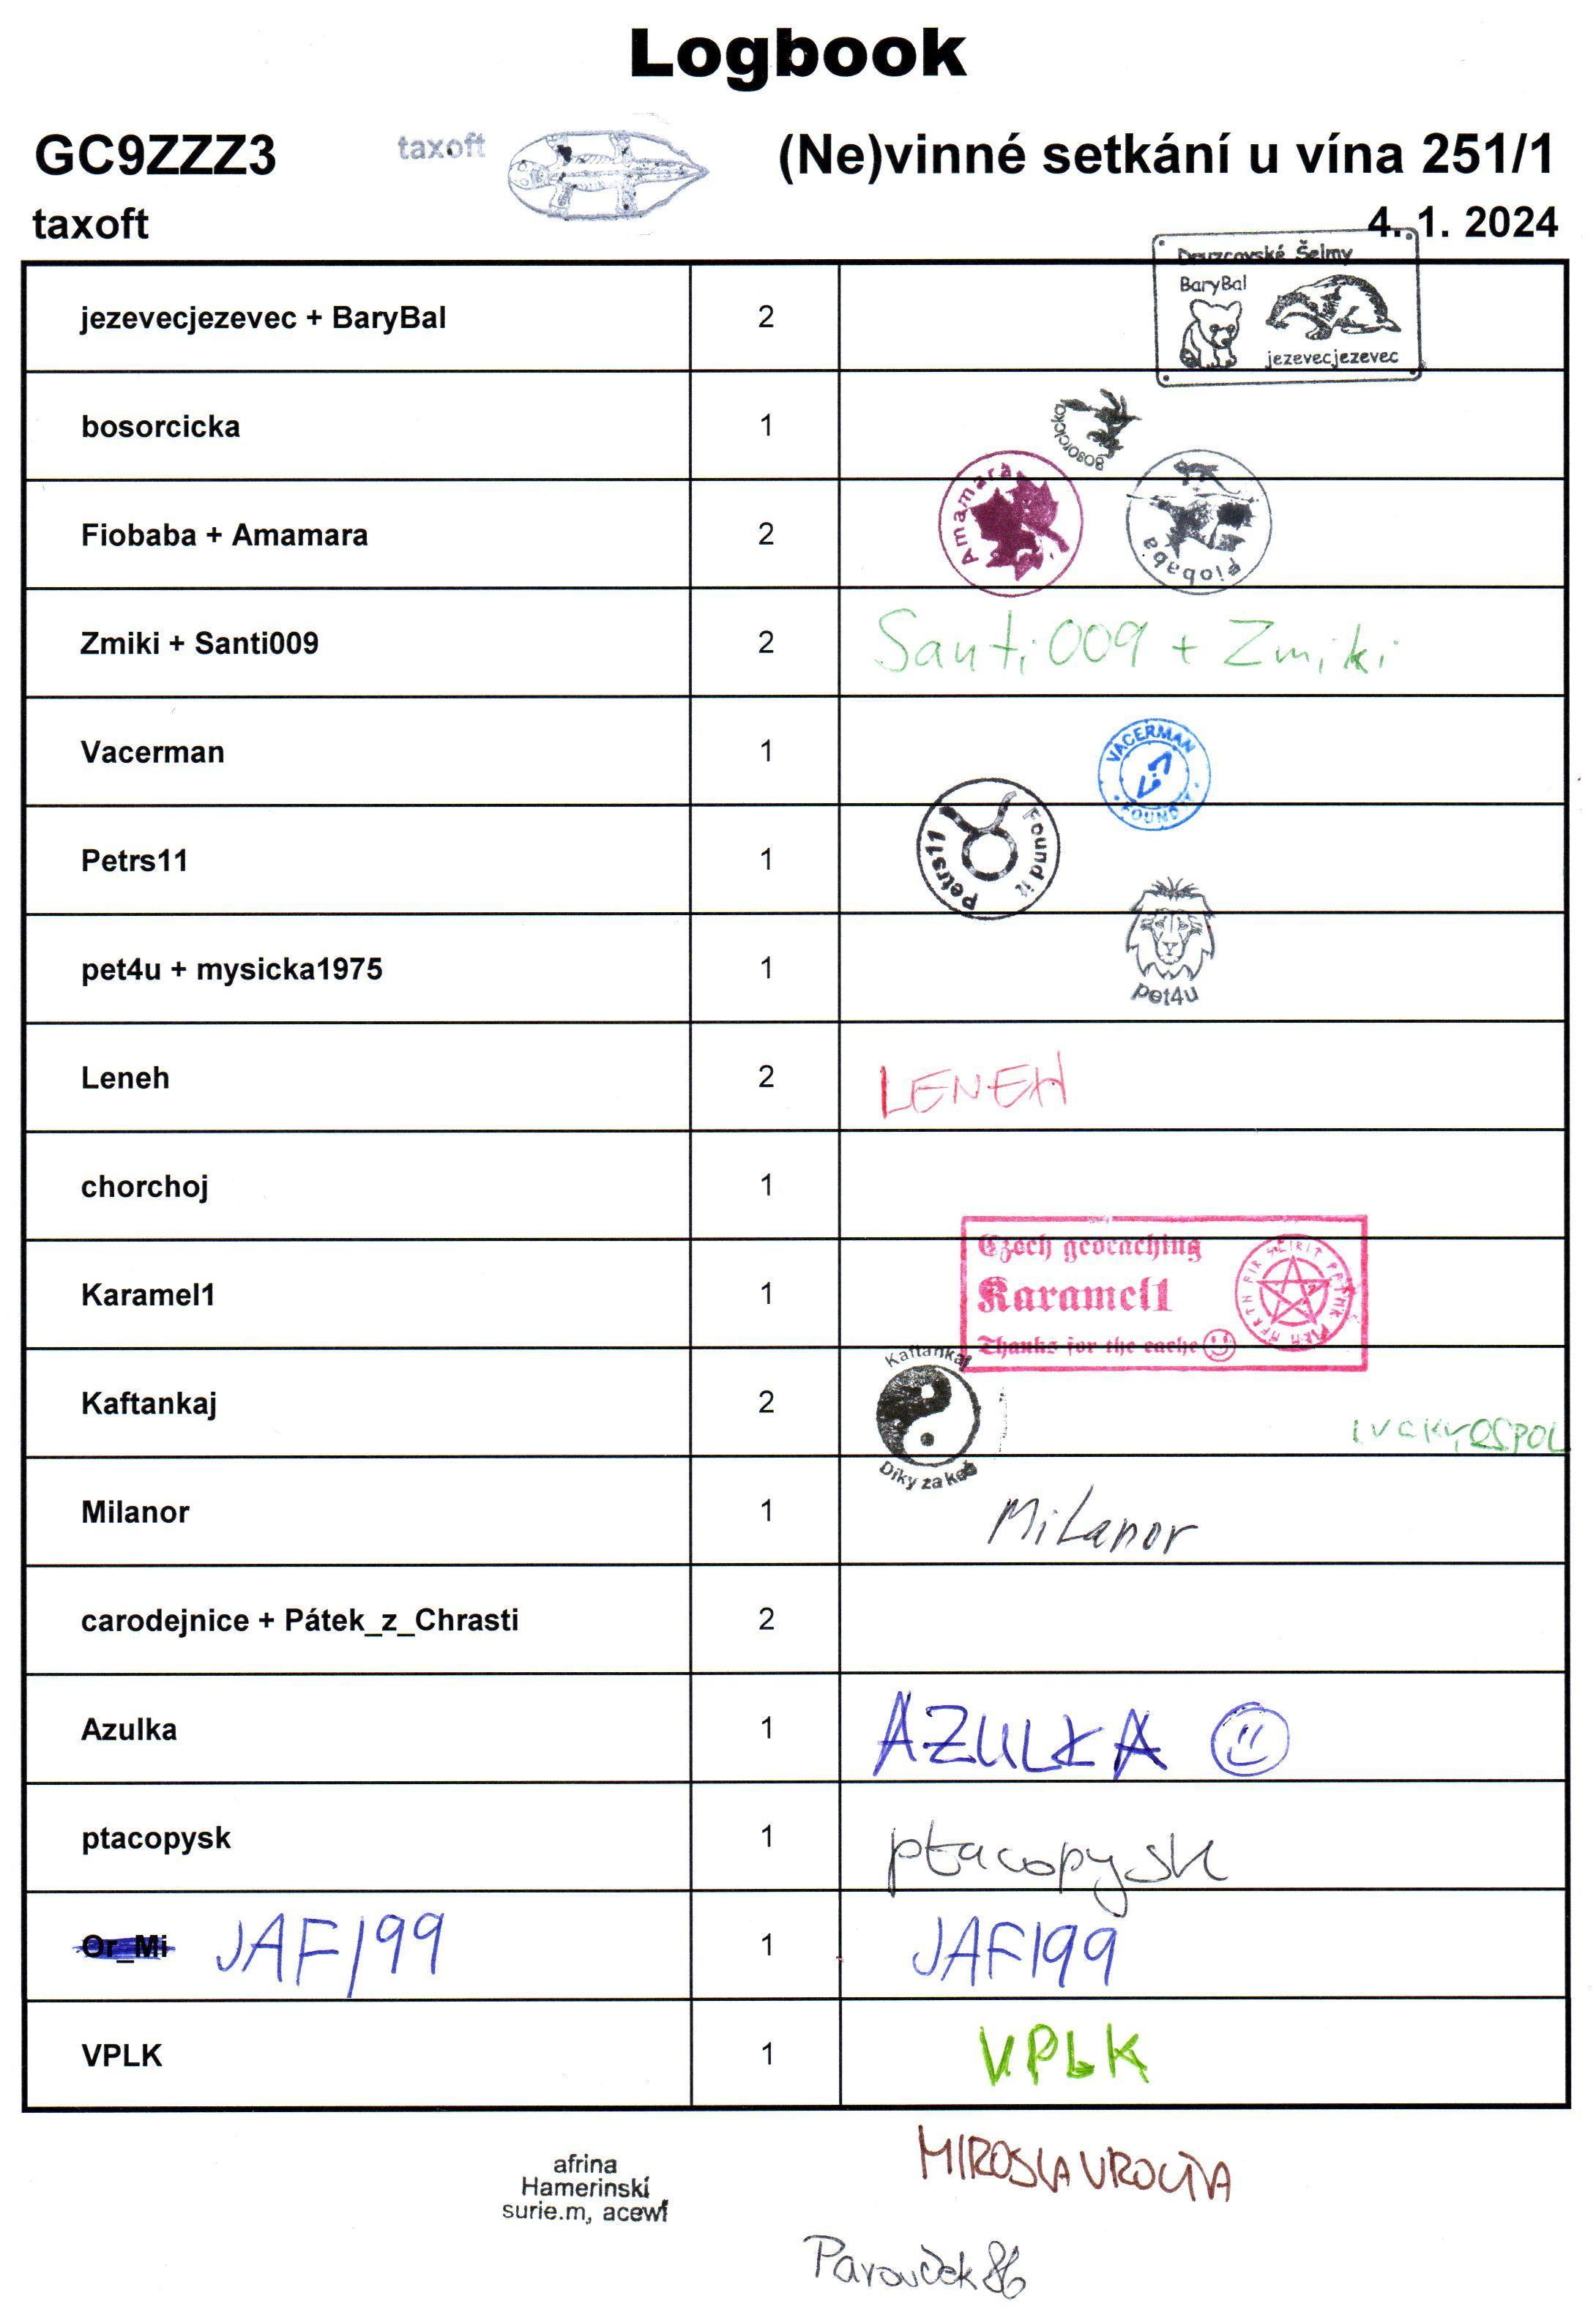 Logbook
GC9ZZZ3 taxoft (Ne)vinné setkání u vína 251/1
taxoft 4. 1. 2024
Šelmy
jezevecjezevec + BaryBal 2 BaryBal
jezevecjezevec
bosorcicka 1 bosorcicka
Fiobaba + Amamara 2 Amamara Fiobaba
Zmiki + Santi009 2 Santi009 + Zmiki
Vacerman 1 VACERMAN FOUND IT
Petrs11 1 Petrs11 Found it
pet4u + mysicka1975 1 pet4u
Leneh 2 LENEH
chorchoj 1
Czech geocaching
Karamel1 1 Karamel1
Thanks for the cache
Kaftankaj 2 Kaftankaj Díky za keš
Milanor 1 Milanor
carodejnice + Pátek_z_Chrasti 2
Azulka 1 AZULKA
ptacopysk 1 ptacopysk
Or_Mi JAF199 1 JAF199
VPLK 1 VPLK
afrina
Hamerinskí
surie.m, acewf
Pavouček86